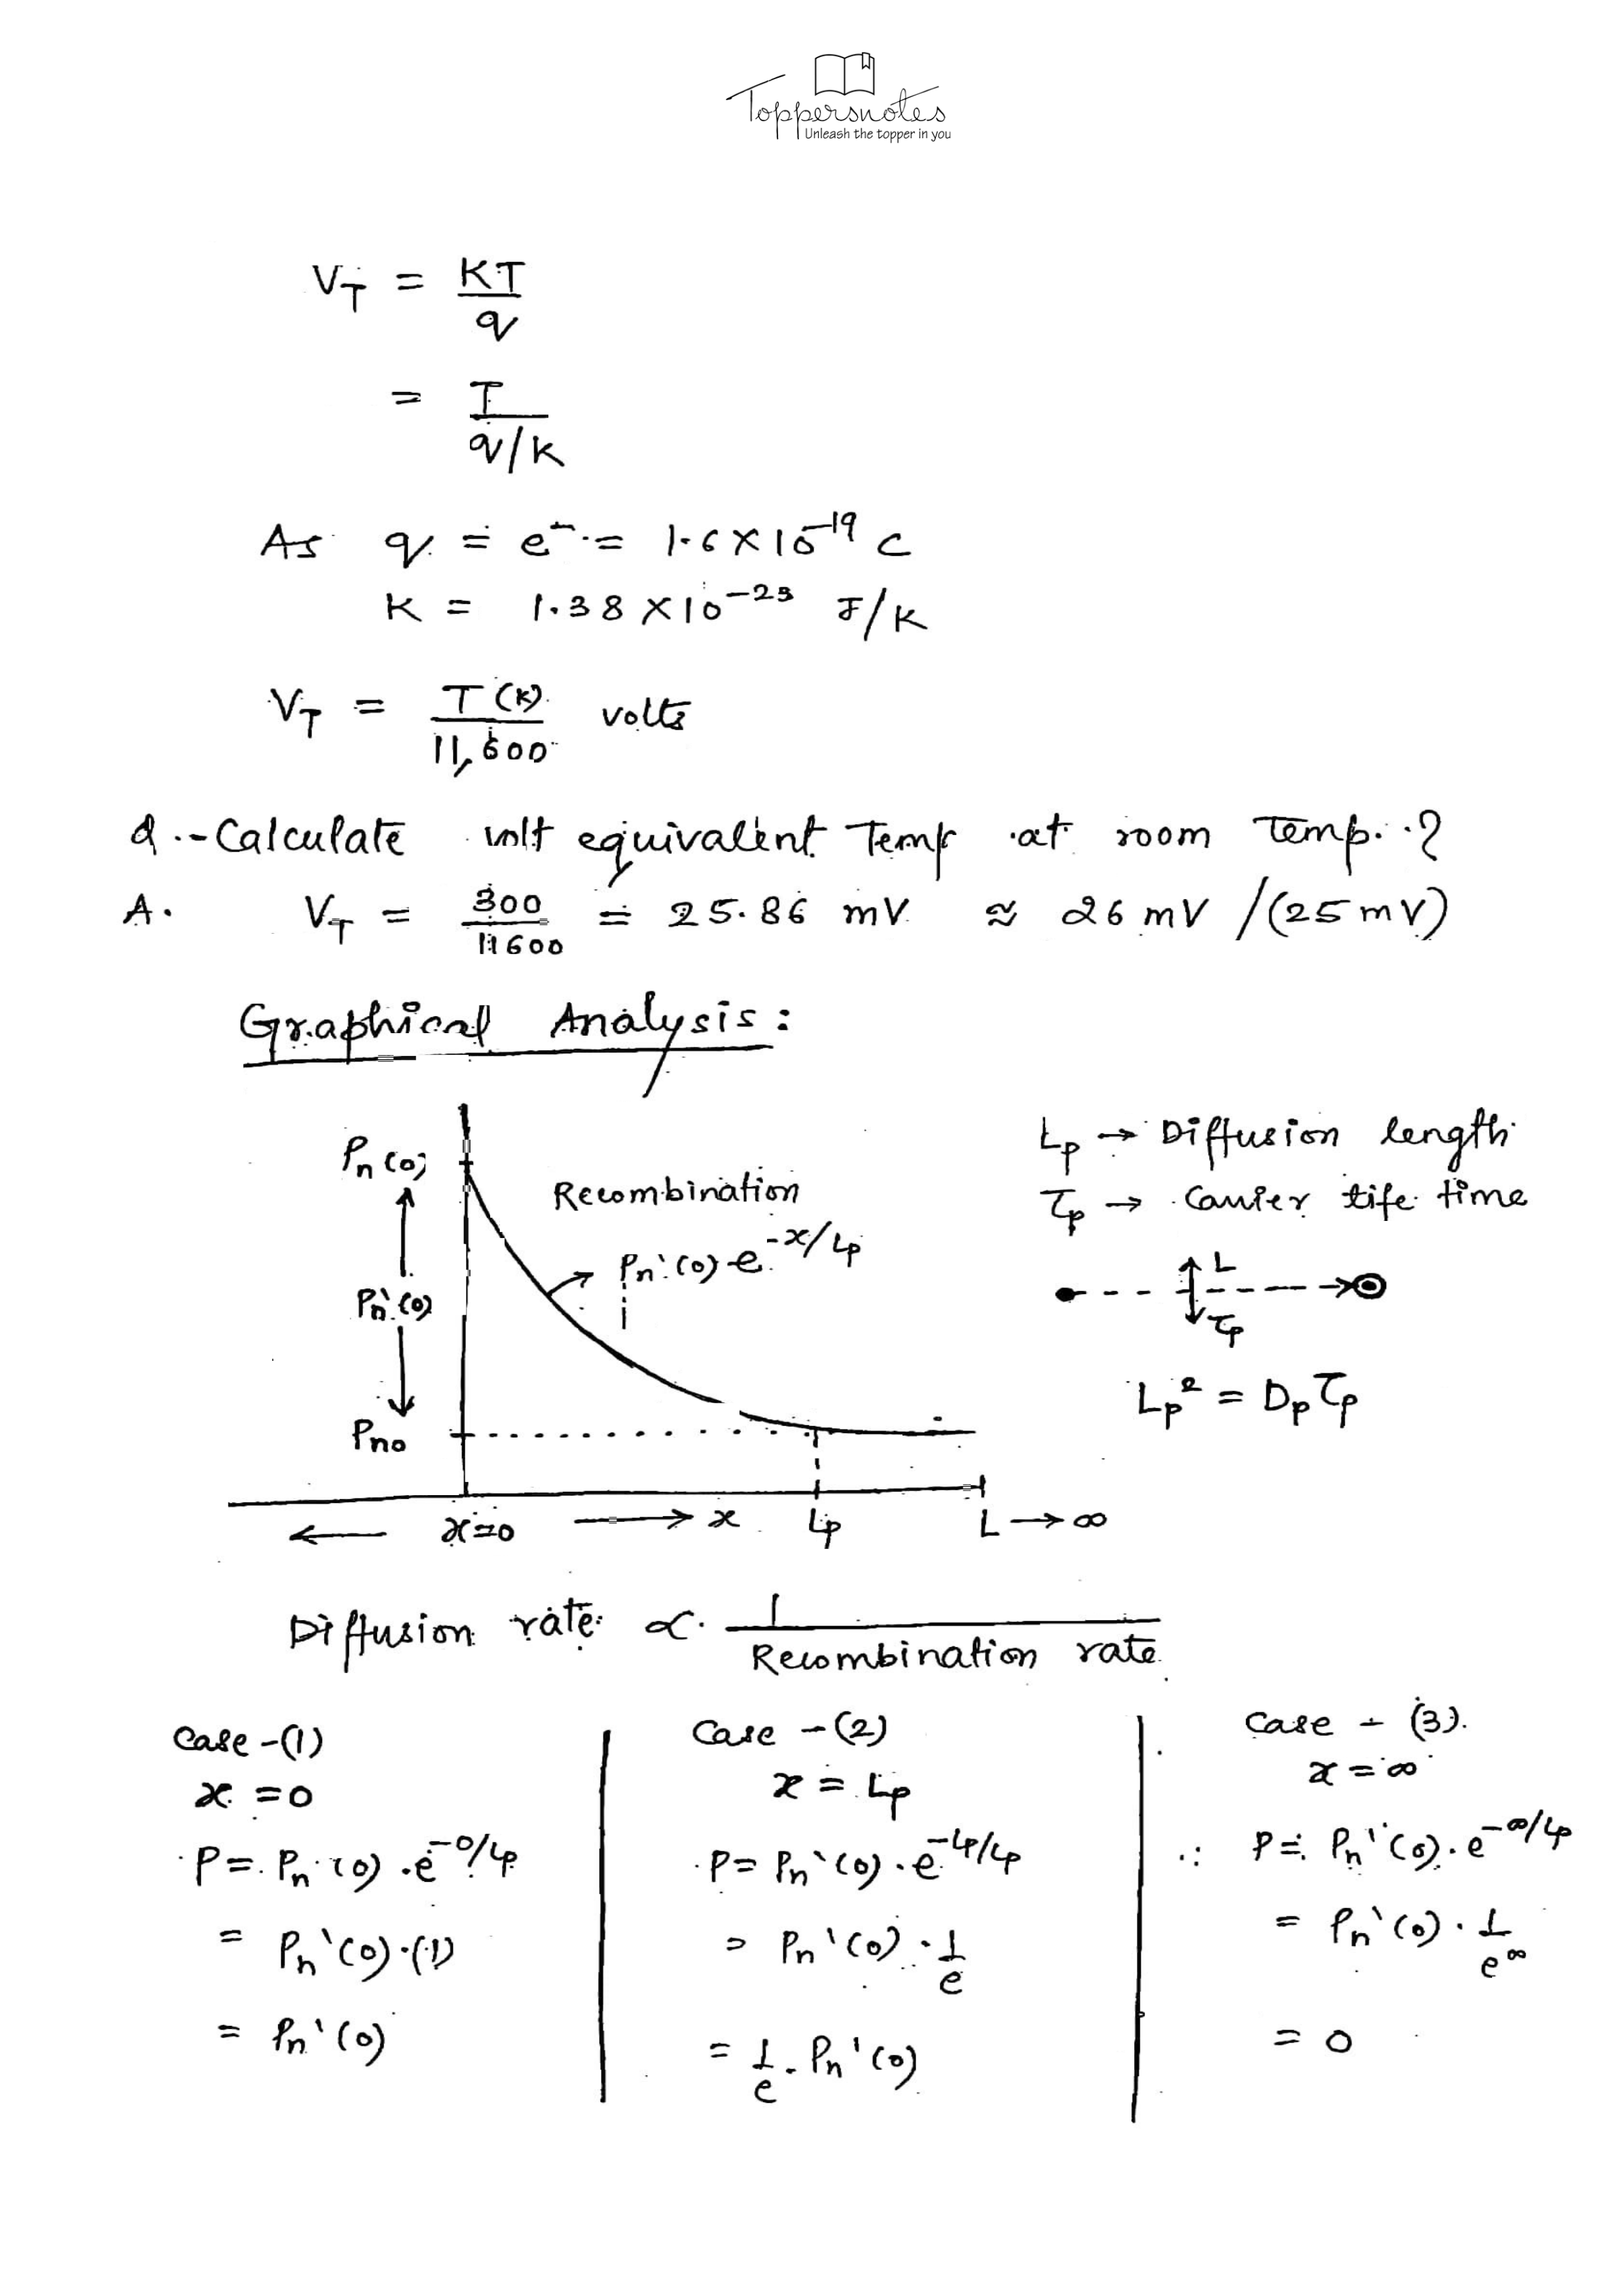 Toppersnotes
Unleash the topper in you
V_T = KT/q
= T/(q/K)
As q = e^- = 1.6×10^-19 C
K = 1.38×10^-23 J/K
V_T = T(K)/11,600 volts
Q.- Calculate volt equivalent Temp at room Temp.?
A. V_T = 300/11600 = 25.86 mV ≈ 26 mV /(25 mV)
Graphical Analysis:
Pn(0)
Recombination
Pn'(0) e^-x/Lp
Pn'(0)
Pno
x=0 → x Lp L → ∞
Lp → Diffusion length
τp → Carrier life time
L
τp
Lp² = Dp τp
Diffusion rate ∝ 1/Recombination rate
Case -(1)
x = 0
P = Pn'(0) . e^-0/Lp
= Pn'(0)·(1)
= Pn'(0)
Case -(2)
x = Lp
P = Pn'(0) . e^-Lp/Lp
= Pn'(0) . 1/e
= 1/e . Pn'(0)
Case - (3).
x = ∞
∴ P = Pn'(0) . e^-∞/Lp
= Pn'(0) . 1/e^∞
= 0